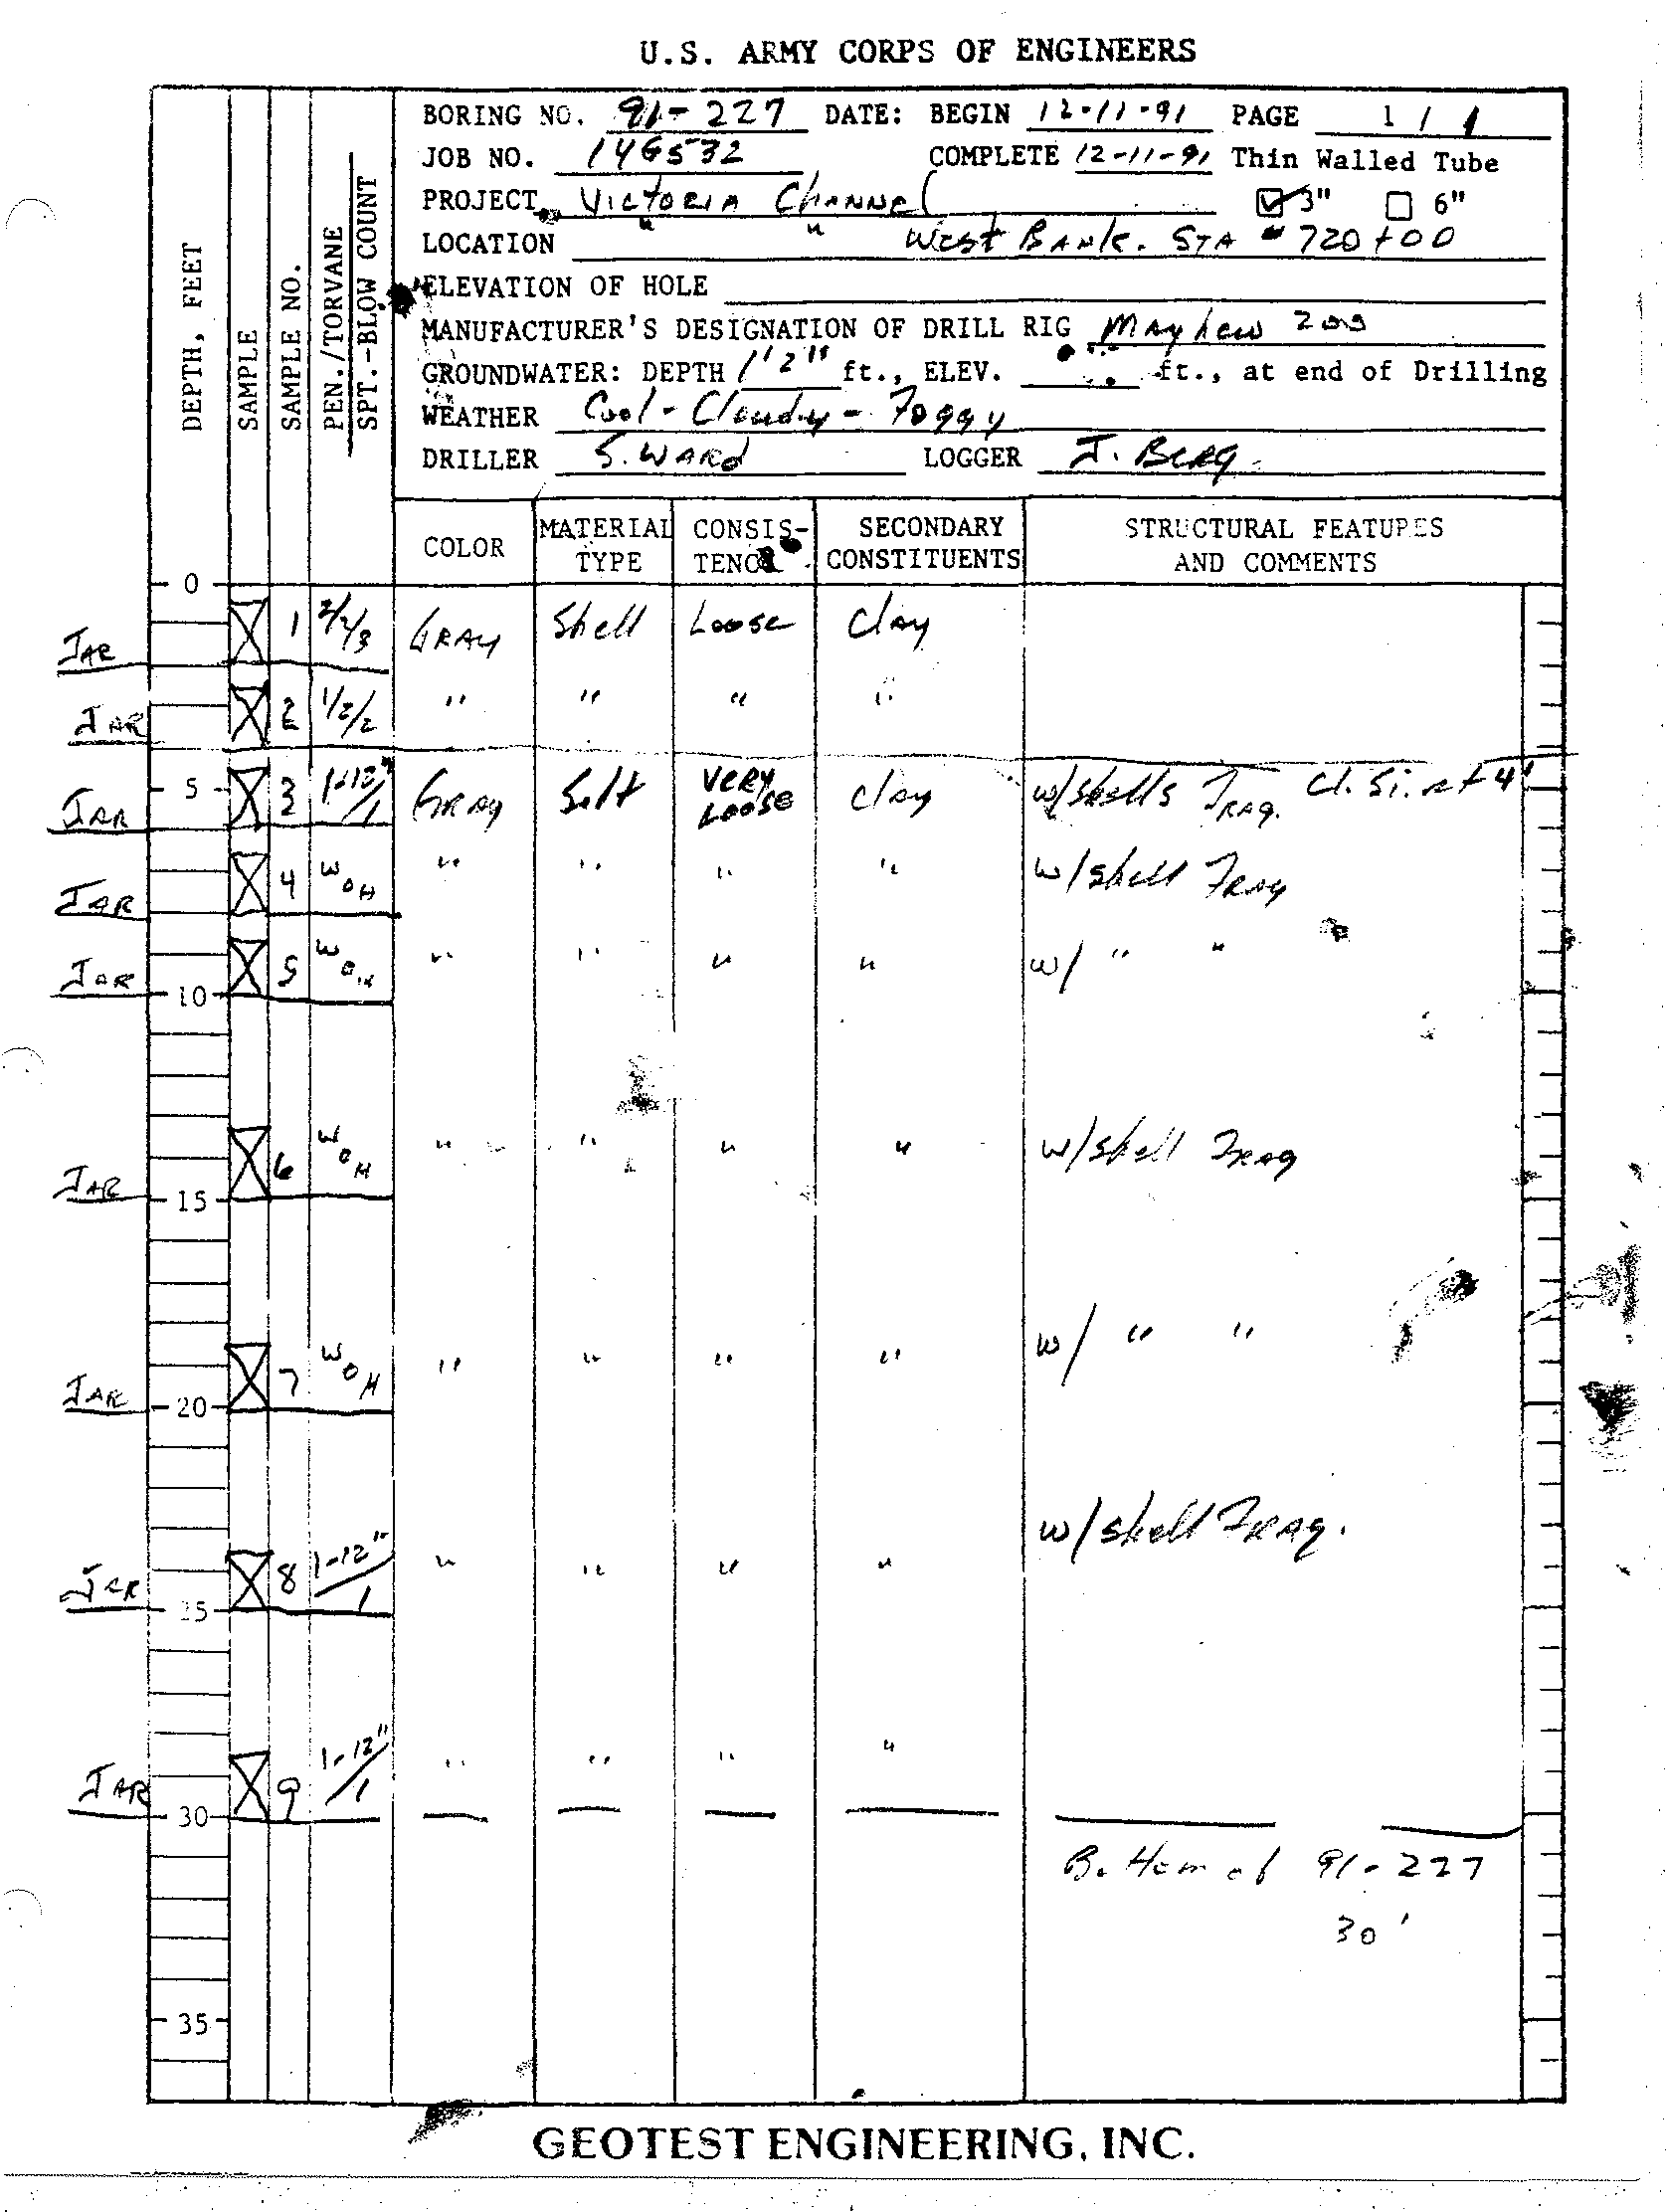 U.S. ARMY CORPS OF ENGINEERS
BORING NO. 91-227 DATE: BEGIN 12-11-91 PAGE 1 / 1
JOB NO. 14G532 COMPLETE 12-11-91 Thin Walled Tube
PROJECT Victoria Channel ☑ 3" ☐ 6"
LOCATION " " West Bank. STA 720+00
ELEVATION OF HOLE
MANUFACTURER'S DESIGNATION OF DRILL RIG Mayhew 200
GROUNDWATER: DEPTH 1'2" ft., ELEV. ft., at end of Drilling
WEATHER Cool - Cloudy - Foggy
DRILLER S. WARd LOGGER J. Berg.
DEPTH, FEET
SAMPLE
SAMPLE NO.
PEN./TORVANE
SPT.-BLOW COUNT
COLOR MATERIAL TYPE CONSIS- SECONDARY CONSTITUENTS STRUCTURAL FEATURES AND COMMENTS
0
JAR 1 2/2/3 GRAY Shell Loose Clay
JAR 2 1/2/2 " " " "
JAR 5 3 1-12"/1 GRAY Silt VERY LOOSE clay w/shells FRAG. Cl. Si. at 4'
JAR 4 WOH " " " " w/shell FRAG
JAR 10 5 WOH " " " " w/ " "
JAR 15 6 WOH " " " " w/shell FRAG
JAR 20 7 WOH " " " " w/ " "
JAR 25 8 1-12"/1 " " " " w/shell FRAG.
JAR 30 9 1-12"/1 " " " "
Bottom of 91-227
30'
35
GEOTEST ENGINEERING, INC.